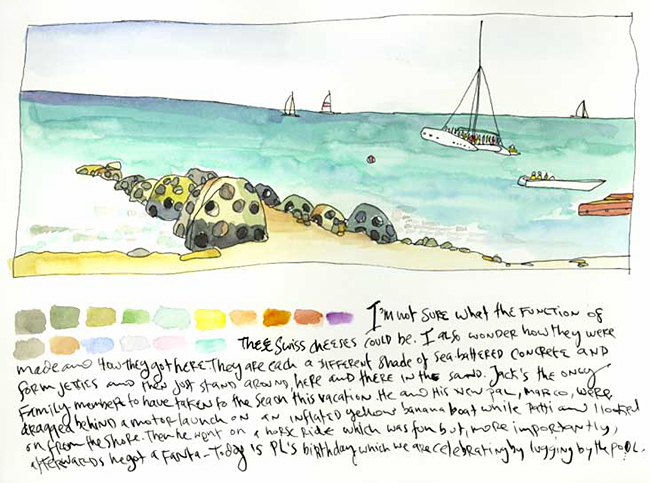 I'm not sure what the function of
these Swiss cheeses could be. I also wonder how they were
made and how they got here. They are each a different shade of sea-battered concrete and
form jetties and then just stand around, here and there in the sand. Jack's the only
family member to have taken to the sea on this vacation. He and his new pal, Marco, were
dragged behind a motor launch on an inflated yellow banana boat while Patti and I looked
on from the shore. Then he went on a horse ride which was fun but, more importantly,
afterwards he got a Fanta - Today is PL's birthday which we are celebrating by lugging by the pool.